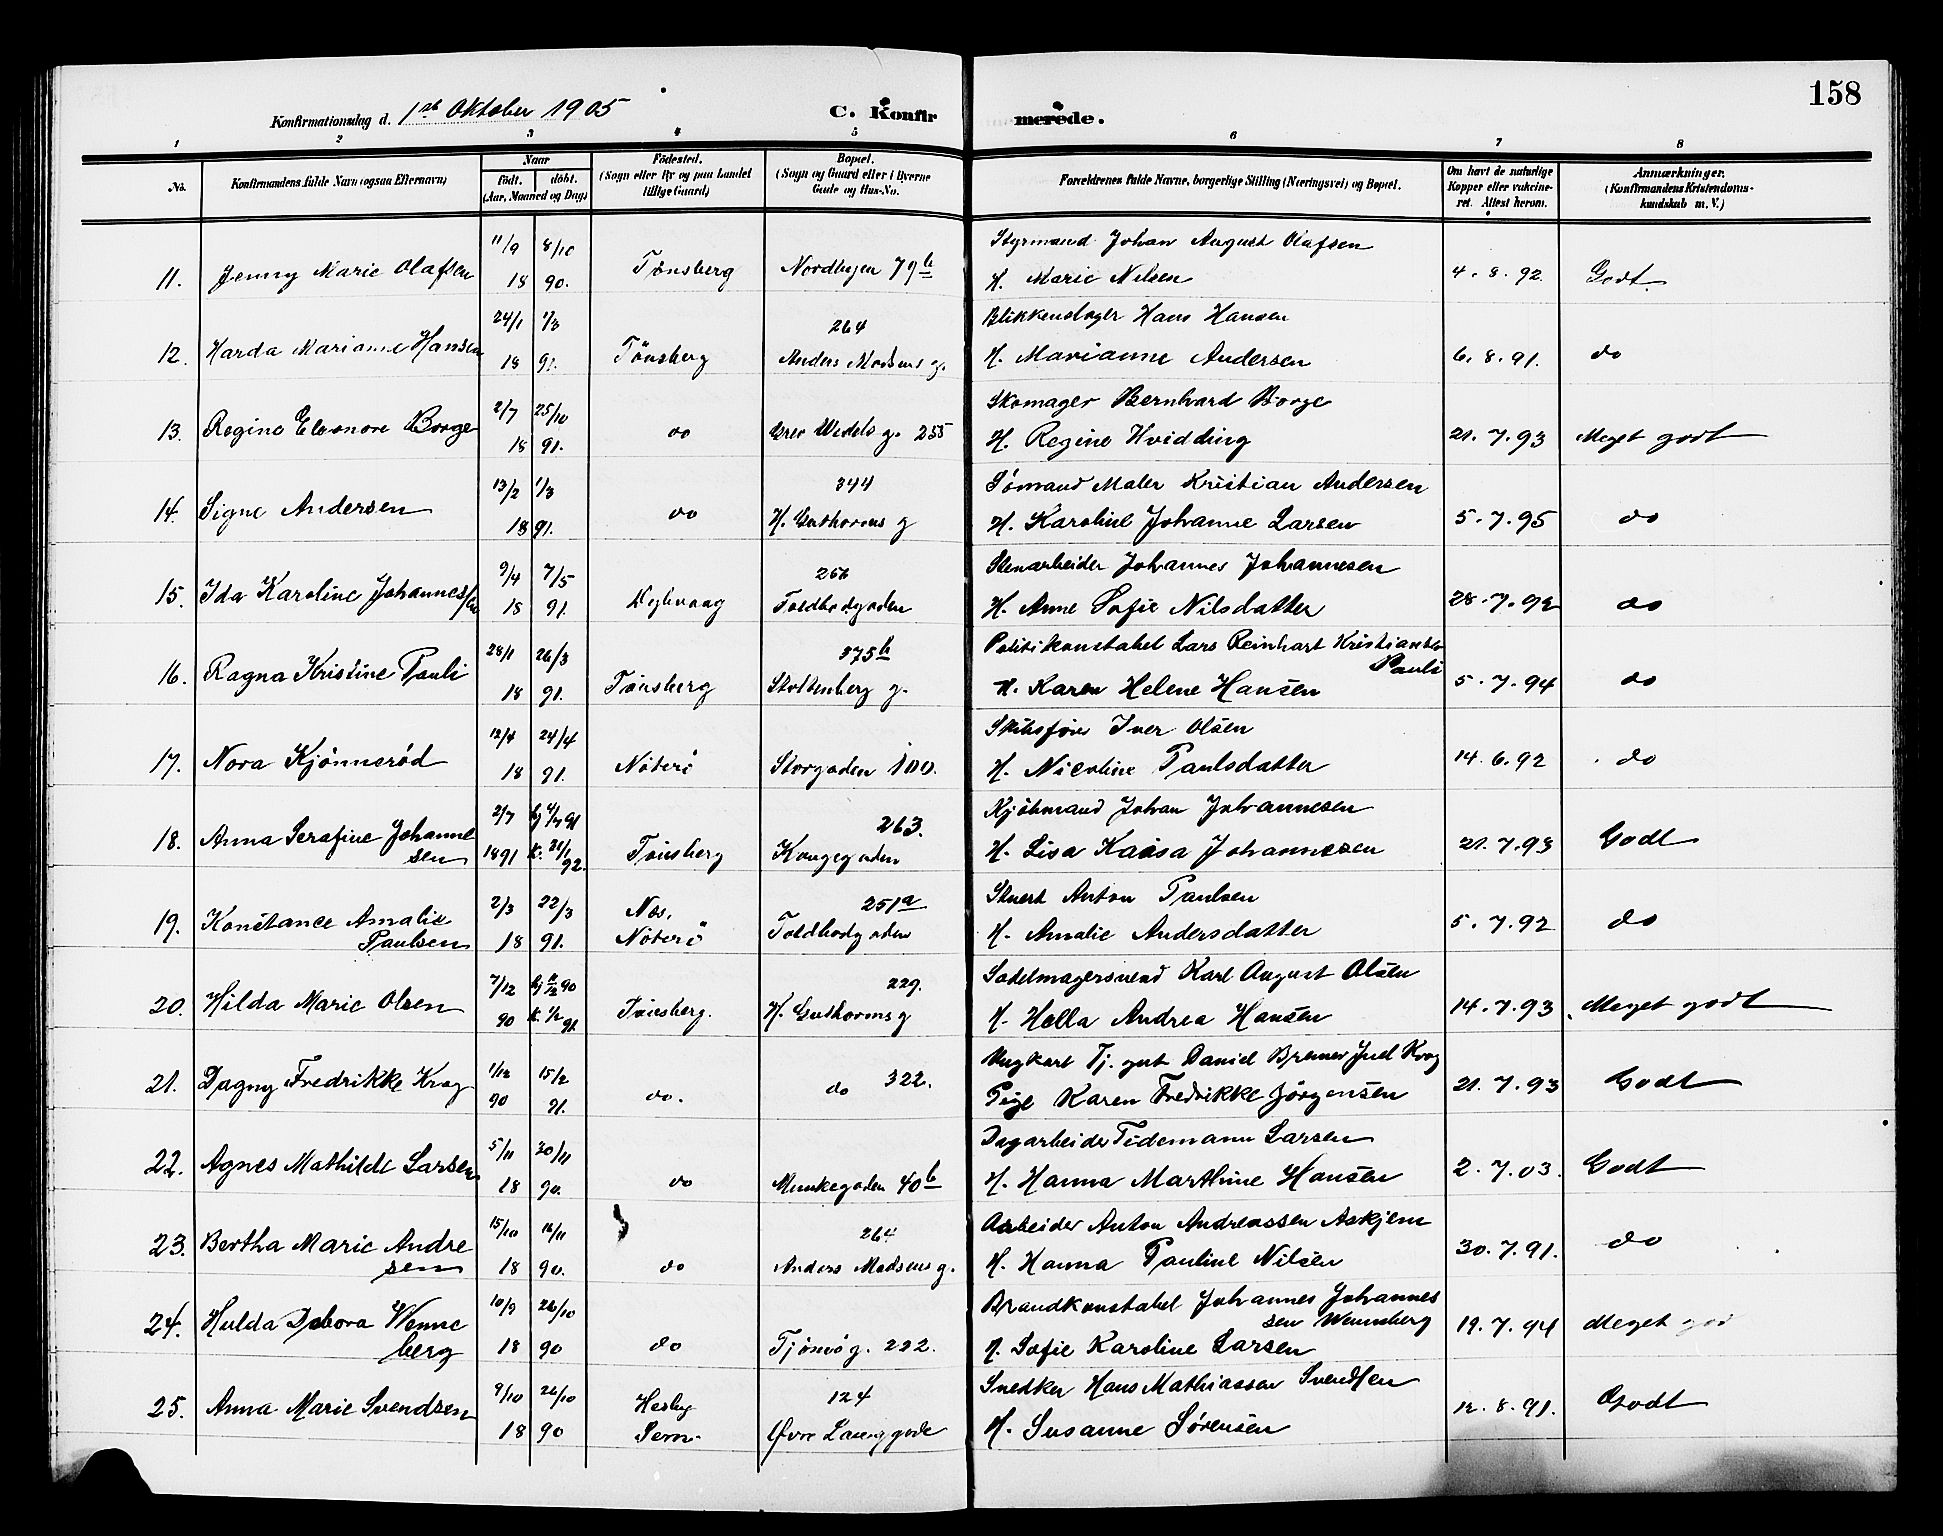 158
Konfirmationsdag d. 1ste Oktober 1905 C. Konfirmerede.
1 2 3 4 5 6 7 8
No. Konfirmandens fulde Navn (ogsaa Efternavn) Naar født. døbt. (Aar, Maaned og Dag) Fødested. (Sogn eller By og paa Landet tillige Gaard) Bopæl. (Sogn og Gaard eller i Byerne Gade og Hus-No. Forældrenes fulde Navne, borgerlige Stilling (Næringsvei) og Bopæl. Om havt de naturlige Kopper eller vaccineret. Attest herom. Anmærkninger. (Konfirmandens Kristendomskundskab m. V.)
11/9 8/10 Styrmand Johan August Olafsen
11. Jenny Marie Olafsen 18 90. Tønsberg Nordbyen 79b H. Marie Nilsen 4.8.92. Godt
24/1 1/3 264 Blikkenslager Hans Hansen
12. Harda Marianne Hansen 18 91. Tönsberg Anders Madsens g. H. Marianne Andersen 6.8.91. do
2/7 25/10 Skomager Bernhard Borge
13. Regine Eleonore Borge 18 91. do Grev Wedels g. 255 H. Regine Hvidding 21.7.93 Meget godt
13/2 1/3 344 Sömand Maler Kristian Andersen
14. Signe Andersen 18 91. do H. Guthorms g H. Karoline Johanne Larsen 5.7.95 do
9/4 7/5 Stenarbeider Johannes Johannesen
15. Ida Karoline Johannessen 18 91. Toldbodgaden H. Anne Sofie Nilsdatter 28.7.92 do
28/1 26/3 375b Politikonstabel Lars Reinhart Kristiansen Pauli
16. Ragna Kristine Pauli 18 91. Tönsberg Stoltenberg g. H. Karen Helene Hansen 5.7.94 do
12/4 24/4 Skibsfører Iver Olsen
17. Nora Kjönnerød 18 91. Nöterö Storgaden 100. H. Nicoline Paulsdatter 14.6.92 do
2/7 hj 4/7 91 263. Kjöbmand Johan Johannesen
18. Anna Serafine Johannesen 1891 K. 21/1 92. Tönsberg Kongegaden H. Lisa Kaisa Johannessen 21.7.93 Godt
2/3 22/3 Næs, 251a Stuert Anton Paulsen
19. Konstance Amalie Paulsen 18 91. Nöterö Toldbodgaden H. Amalie Andersdatter 5.7.92 do
7/12 90 229. Sadelmagersvend Karl August Olsen
20. Hilda Marie Olsen 90 K. 91. Tönsberg. H. Guthorms g H. Hella Andrea Hansen 14.7.93 Meget godt
1/12 15/2 322. Ungkarl Tj. gut Daniel Bremer Juel Krog
21. Dagny Fredrikke Krog 90 91. do. do Pige Karen Fredrikke Jörgensen 21.7.93 Godt
5/11 30/11 Dagarbeider Tidemann Larsen
22. Agnes Mathilde Larsen 18 90. do Munkegaden 40b H. Hanna Marthine Hansen 2.7.03. Godt
15/10 16/11 264 Arbeider Anton Andreassen Askjem
23. Bertha Marie Andresen 18 90. do Anders Madsens g. H. Hanna Pauline Nilsen 30.7.91. do
10/9 26/10 Brandkonstabel Johannes Johannessen Wennsberg
24. Hulda Debora Wenneberg 18 90 do Tjömö g. 222. H. Sofie Karoline Larsen 19.7.94 Meget god
9/10 26/10 Hesby 124 Snedker Hans Mathiassen Svendsen
25. Anna Marie Svendsen 18 90 Sem. Øvre Langgade H. Susanne Sørensen 12.8.91. Godt